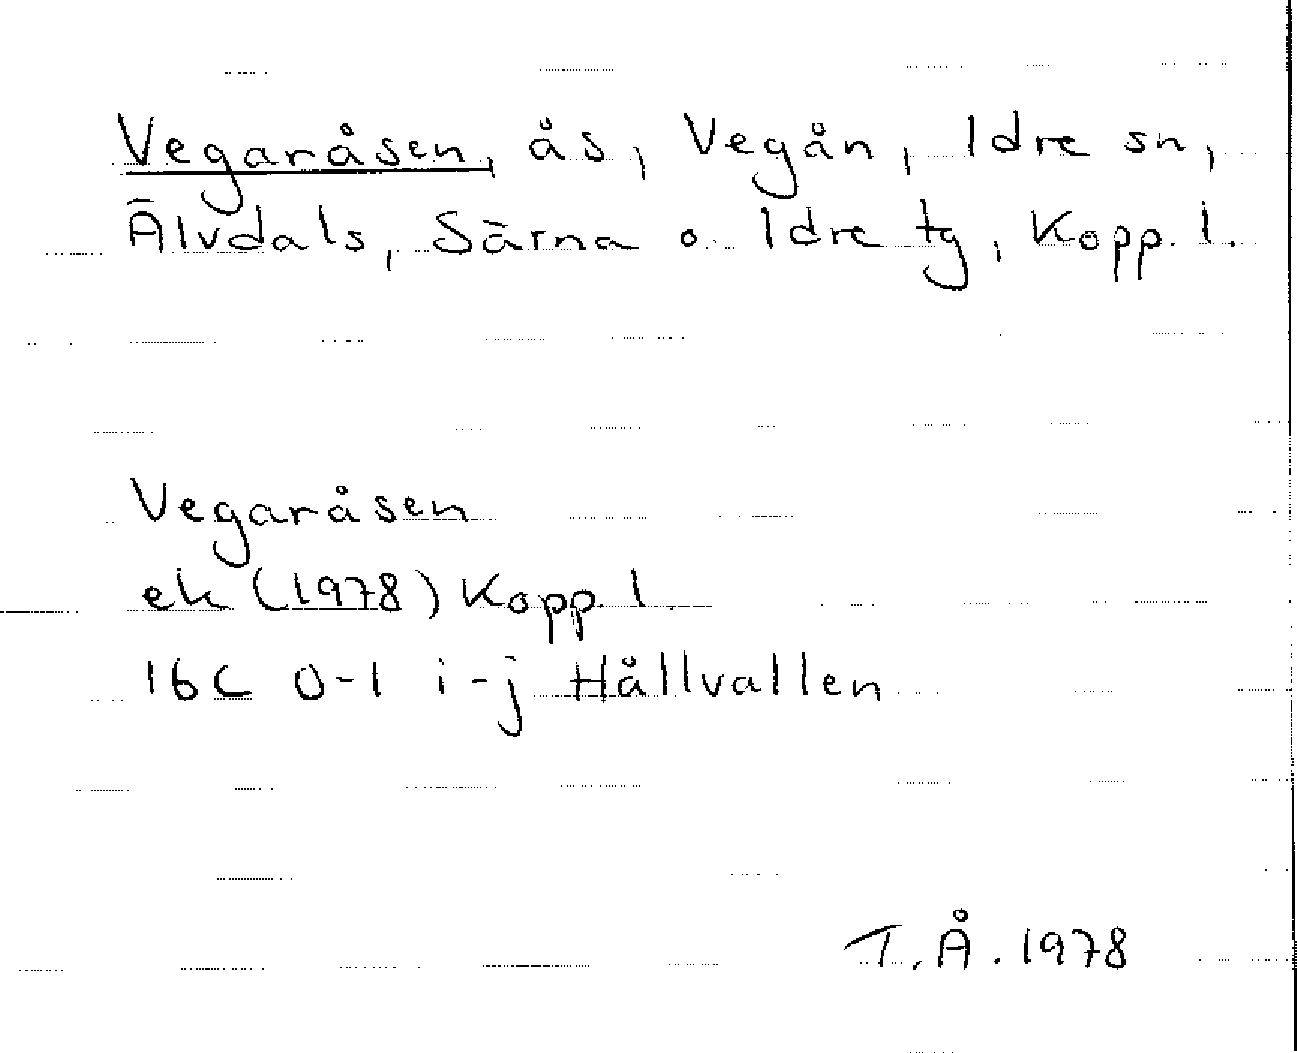 Vegaråsen, ås, Vegån, Idre sn,
Älvdals, Särna o. Idre tg, Kopp. l.
Vegaråsen
ek (1978) Kopp. l.
16C 0-1 i-j Hållvallen
T.Å. 1978